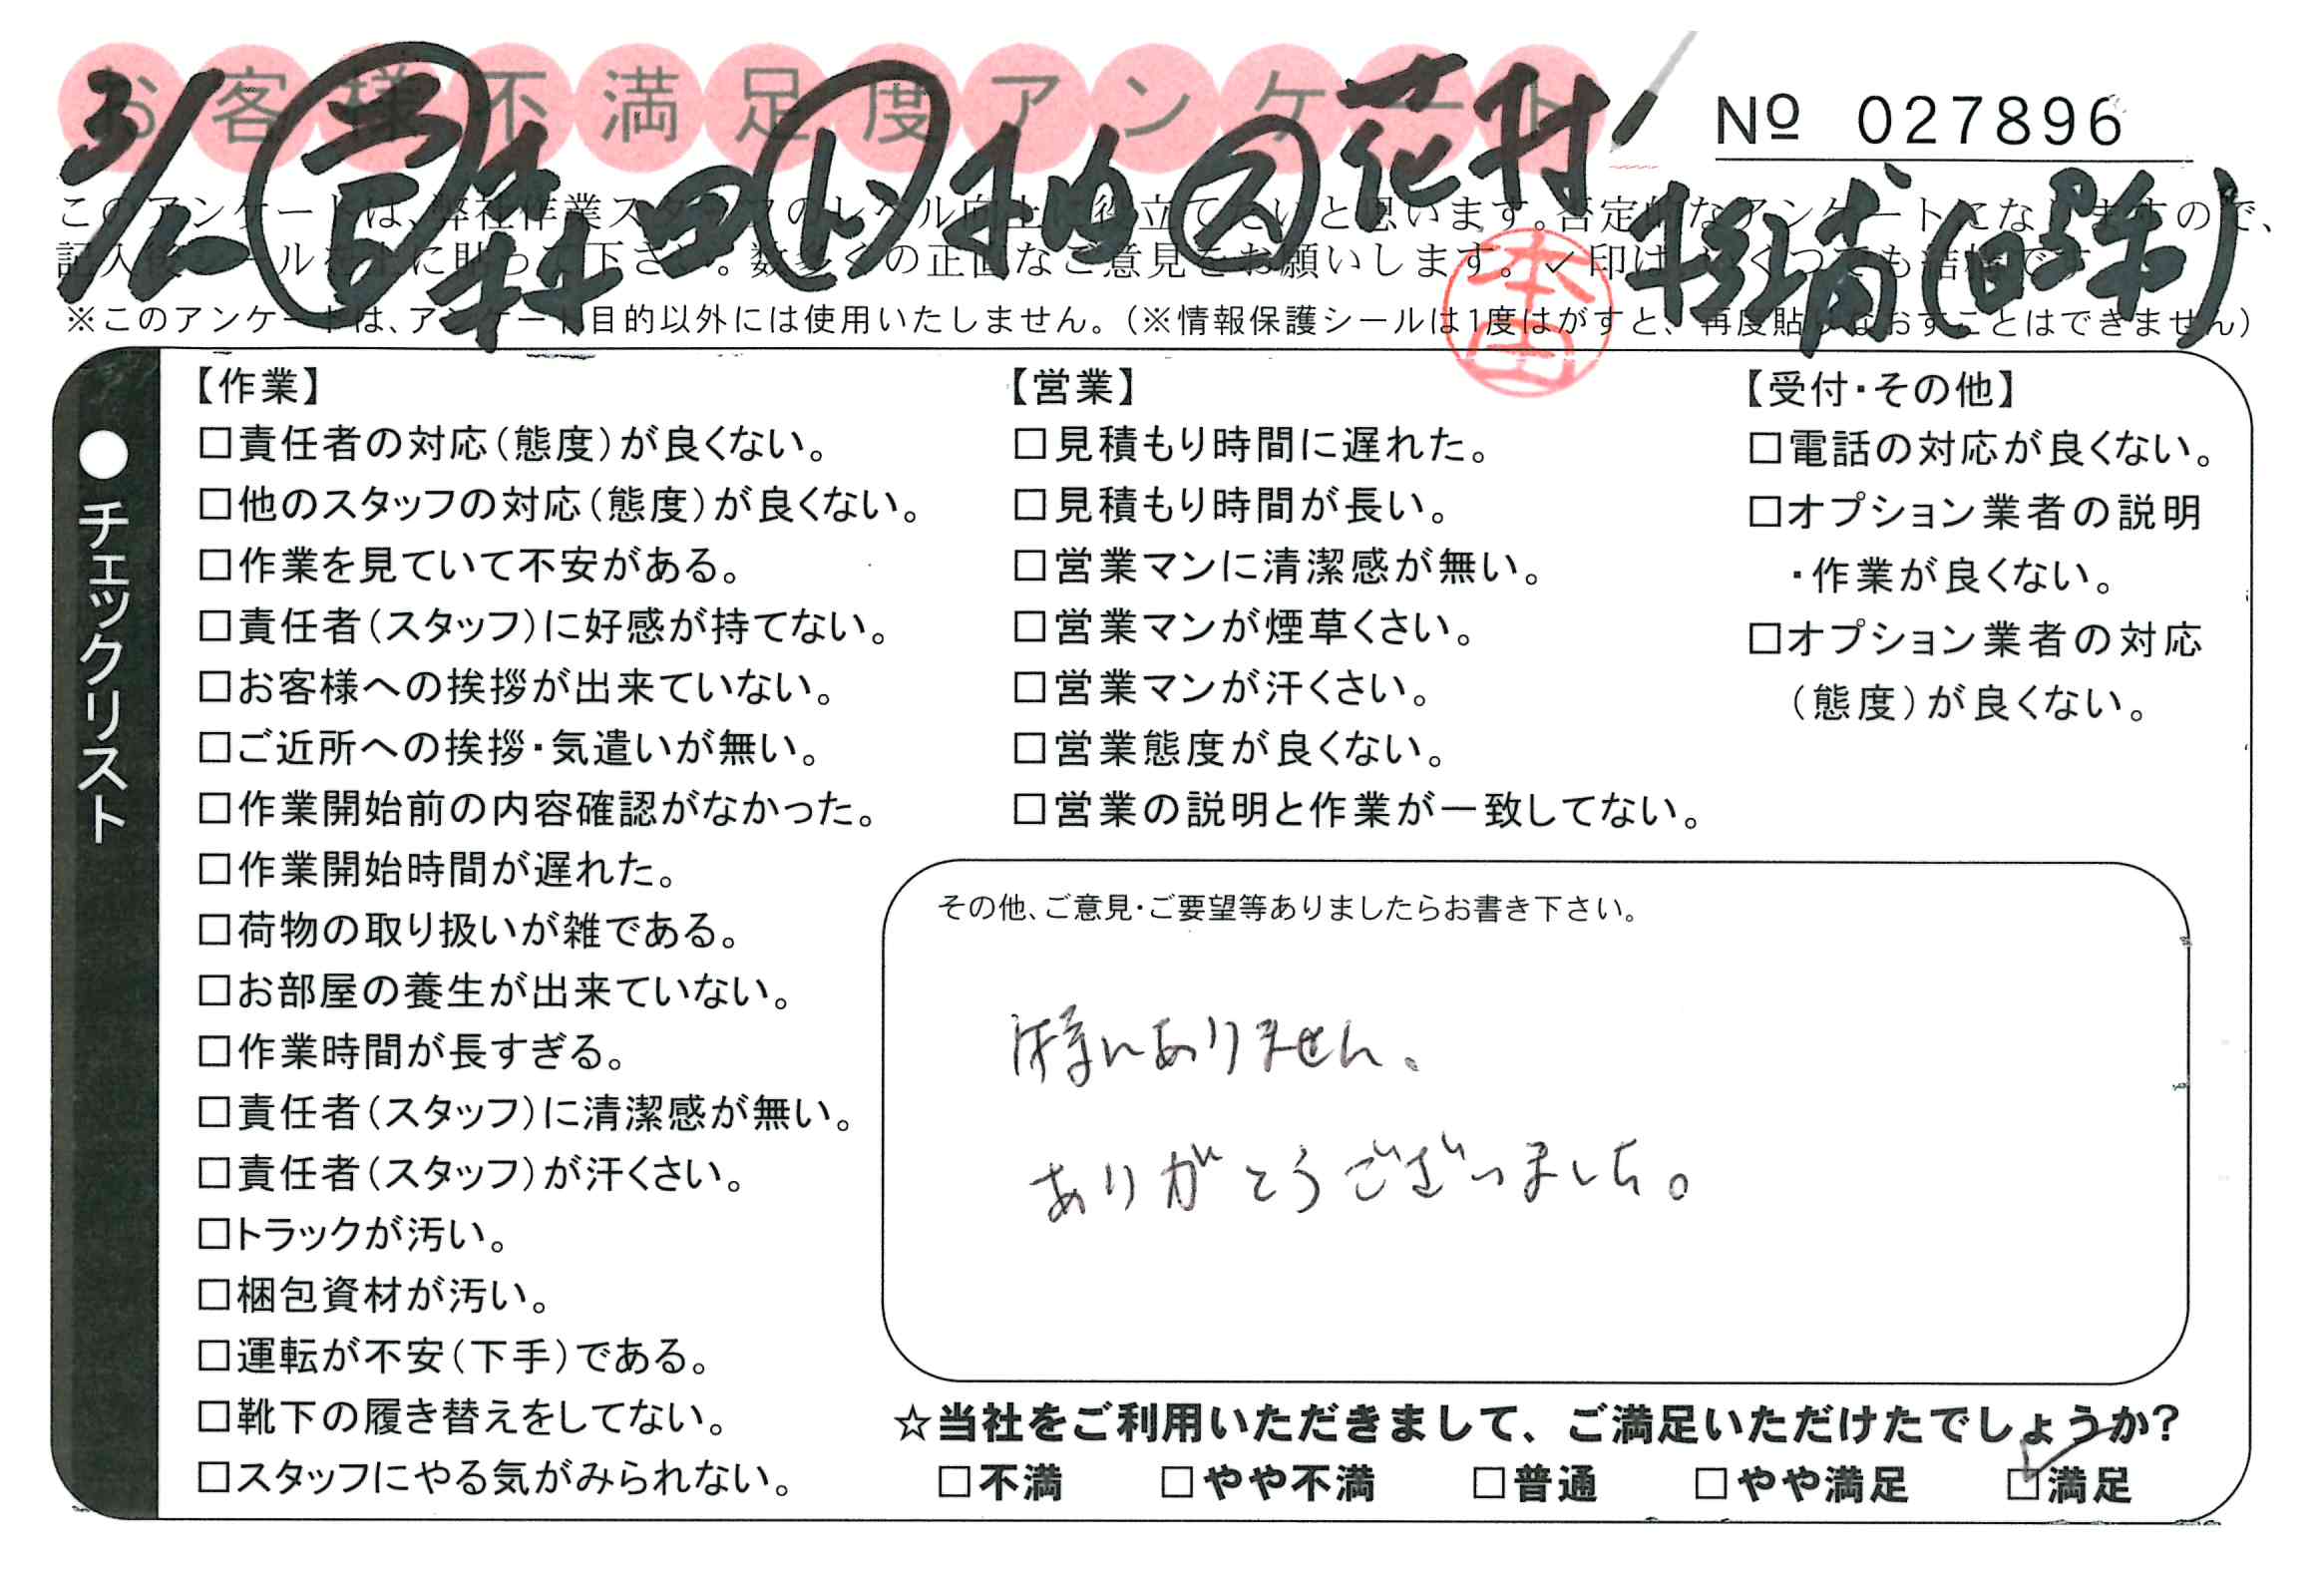 お客様不満足度アンケート
No 027896
このアンケートは、弊社作業スタッフのレベル向上に役立てたいと思います。否定的なアンケートになりますので、
記入後シールを上に貼って下さい。数多くの正直なご意見をお願いします。✓印はいくつでも結構です
※このアンケートは、アンケート目的以外には使用いたしません。(※情報保護シールは1度はがすと、再度貼りなおすことはできません)
花村
杉浦
本田
●チェックリスト
【作業】
□責任者の対応(態度)が良くない。
□他のスタッフの対応(態度)が良くない。
□作業を見ていて不安がある。
□責任者(スタッフ)に好感が持てない。
□お客様への挨拶が出来ていない。
□ご近所への挨拶・気遣いが無い。
□作業開始前の内容確認がなかった。
□作業開始時間が遅れた。
□荷物の取り扱いが雑である。
□お部屋の養生が出来ていない。
□作業時間が長すぎる。
□責任者(スタッフ)に清潔感が無い。
□責任者(スタッフ)が汗くさい。
□トラックが汚い。
□梱包資材が汚い。
□運転が不安(下手)である。
□靴下の履き替えをしてない。
□スタッフにやる気がみられない。
【営業】
□見積もり時間に遅れた。
□見積もり時間が長い。
□営業マンに清潔感が無い。
□営業マンが煙草くさい。
□営業マンが汗くさい。
□営業態度が良くない。
□営業の説明と作業が一致してない。
【受付・その他】
□電話の対応が良くない。
□オプション業者の説明
・作業が良くない。
□オプション業者の対応
(態度)が良くない。
その他、ご意見・ご要望等ありましたらお書き下さい。
特にありません。
ありがとうございました。
☆当社をご利用いただきまして、ご満足いただけたでしょうか?
□不満 □やや不満 □普通 □やや満足 ☑満足